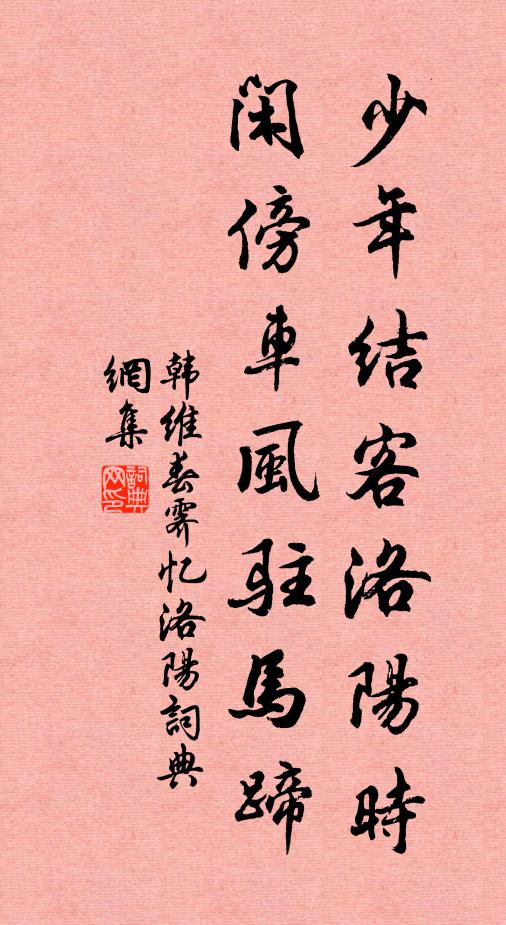 少年结客洛陽時
闲傍車風駐馬蹄
韩维春霁忆洛陽詞典
網集
詞典网印